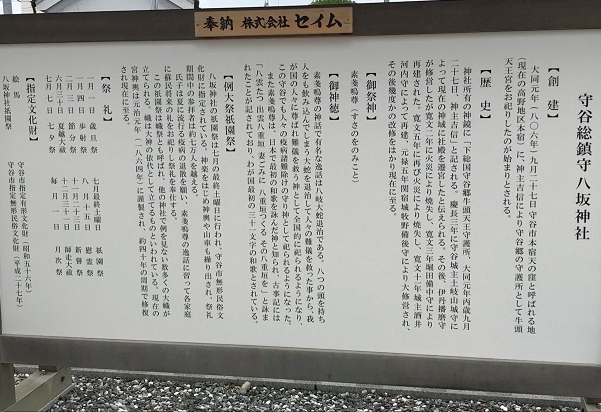 奉納 株式会社 セイム
守谷総鎮守八坂神社
【創建】
大同元年(八〇六年)九月二十七日 守谷市本宿天の窪と呼ばれる地
(現在の高野地区本宿)に、神主吉信により守谷郷の守護所として牛頭
天王宮をお祀りしたのが始まりとされる。
【歴史】
神社所有の神鏡に「下総国守谷郷牛頭天王守護所、大同元年丙歳九月
二十七日、神主吉信」と記される。慶長三年に守谷城主土岐山城守に
よって現在の神域に社殿を遷宮したと伝えられる。その後、伊丹播磨守
が修営したが寛文二年に火災により焼失し、寛文三年堀田備中守により
再建された。寛文五年に再び火災により焼失し、寛文十年城主酒井
河内守によって再建、元禄五年関宿城牧野備後守により大修営され、
その後幾度かの改修をはかり現在に至る。
【御祭神】
素戔嗚尊(すさのをのみこと)
【御神徳】
素戔嗚尊の神話で有名な逸話は八岐大蛇退治である。八つの頭を持ち
人をも飲み込んでしまう大蛇を退治して人々の難儀を救った事から、我
が国の人々は素戔嗚尊は人の難儀を救う神として全国的に祀られるようになり、
この守谷でも人々の疫病諸難除けの守り神として祀られるようになった。
また素戔嗚尊は、日本で最初の和歌を詠んだ神と知られ、古事記には
「八雲たつ 出雲八重垣 妻ごみに 八重垣つくる その八重垣を」と詠ま
れたことが記されており、わが国最初の三十一文字の和歌とされている。
【例大祭祇園祭】
八坂神社の祇園祭は七月の最終土曜日に行われ、守谷市無形民俗文
化財に指定されている。神楽をはじめ神輿や山車も繰り出され、祭礼
期間中の参拝者は約七万人を越える。
氏子は夏に流行る疫病の退散を願い、素戔嗚尊の逸話に習って各家庭
に蘇民将来の札をお祀りし祭礼を奉仕する。
この祇園祭は幟祭とも呼ばれ、他の神社で例を見ない数多くの大幟が
立てられる。幟は大神の依代として立てるものといわれている。現在の
宮神輿は元治元年(一八六四年)に謹製され、約四十年の周期で修復
され現在に至る。
【祭礼】
一月一日 歳旦祭
一月四日 歩射祭
二月三日 節分祭
六月三十日 夏越大祓
七月七日 七夕祭
七月最終土曜日 祇園祭
八月十五日 慰霊祭
十一月二十三日 新嘗祭
十二月三十一日 師走大祓
毎月一日 月次祭
【指定文化財】
絵馬 守谷市指定有形文化財(昭和五十六年)
八坂神社祇園祭 守谷市指定無形民俗文化財(平成二十七年)